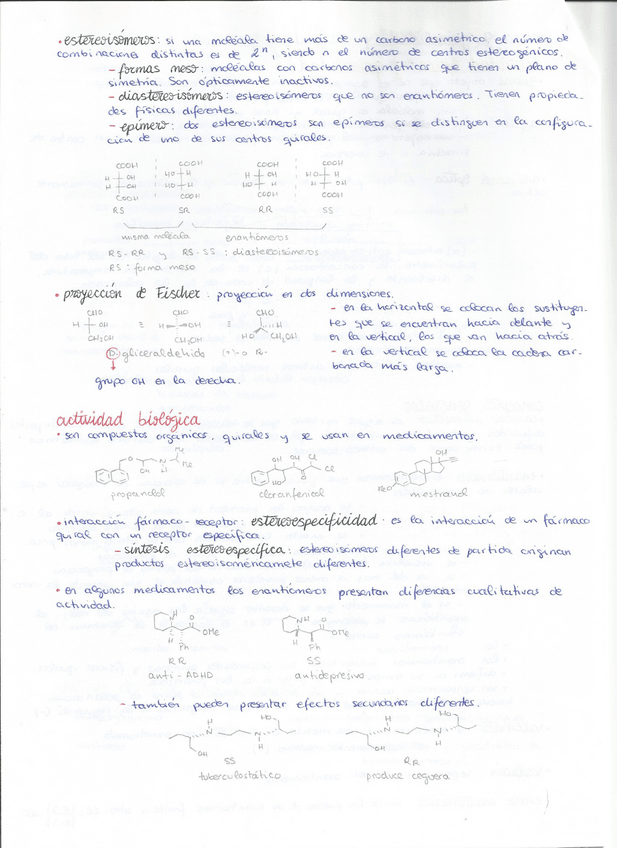 • estereoisómeros: si una molécula tiene más de un carbono asimétrico el número de
combinaciones distintas es de 2ⁿ, siendo n el número de centros estereogénicos.
- formas meso: moléculas con carbonos asimétricos que tienen un plano de
simetría. Son ópticamente inactivos.
- diastereoisómeros: estereoisómeros que no son enantiómeros. Tienen propieda-
des físicas diferentes.
- epímero: dos estereoisómeros son epímeros si se distinguen en la configura-
ción de uno de sus centros quirales.
COOH COOH COOH COOH
H OH HO H H OH HO H
H OH HO H HO H H OH
COOH COOH COOH COOH
RS SR RR SS
misma molécula enantiómeros
RS-RR y RS-SS : diastereoisómeros
RS : forma meso
• proyección de Fischer: proyección en dos dimensiones.
- en la horizontal se colocan los sustituyen-
tes que se encuentran hacia delante y
en la vertical, los que van hacia atrás.
- en la vertical se coloca la cadena car-
bonada más larga.
CHO CHO CHO
H OH ≡ H OH ≡ H
CH₂OH CH₂OH HO CH₂OH
D-gliceraldehido (+) o R-
grupo OH en la derecha.
actividad biológica
• son compuestos orgánicos, quirales y se usan en medicamentos.
O OH N H Me Me
OH OH Cl Cl HO
OH MeO
propanolol cloranfenicol mestranol
• interacción fármaco-receptor: estereoespecificidad. es la interacción de un fármaco
quiral con un receptor específico.
- síntesis estereoespecífica: estereoisómeros diferentes de partida originan
productos estereoisoméricamete diferentes.
• en algunos medicamentos los enantiómeros presentan diferencias cualitativas de
actividad.
H N O OMe Ph
NH O OMe H Ph
RR SS
anti-ADHD antidepresivo
- también pueden presentar efectos secundarios diferentes.
H N OH HO N H
H N OH HO N H
SS RR
tuberculostático produce ceguera